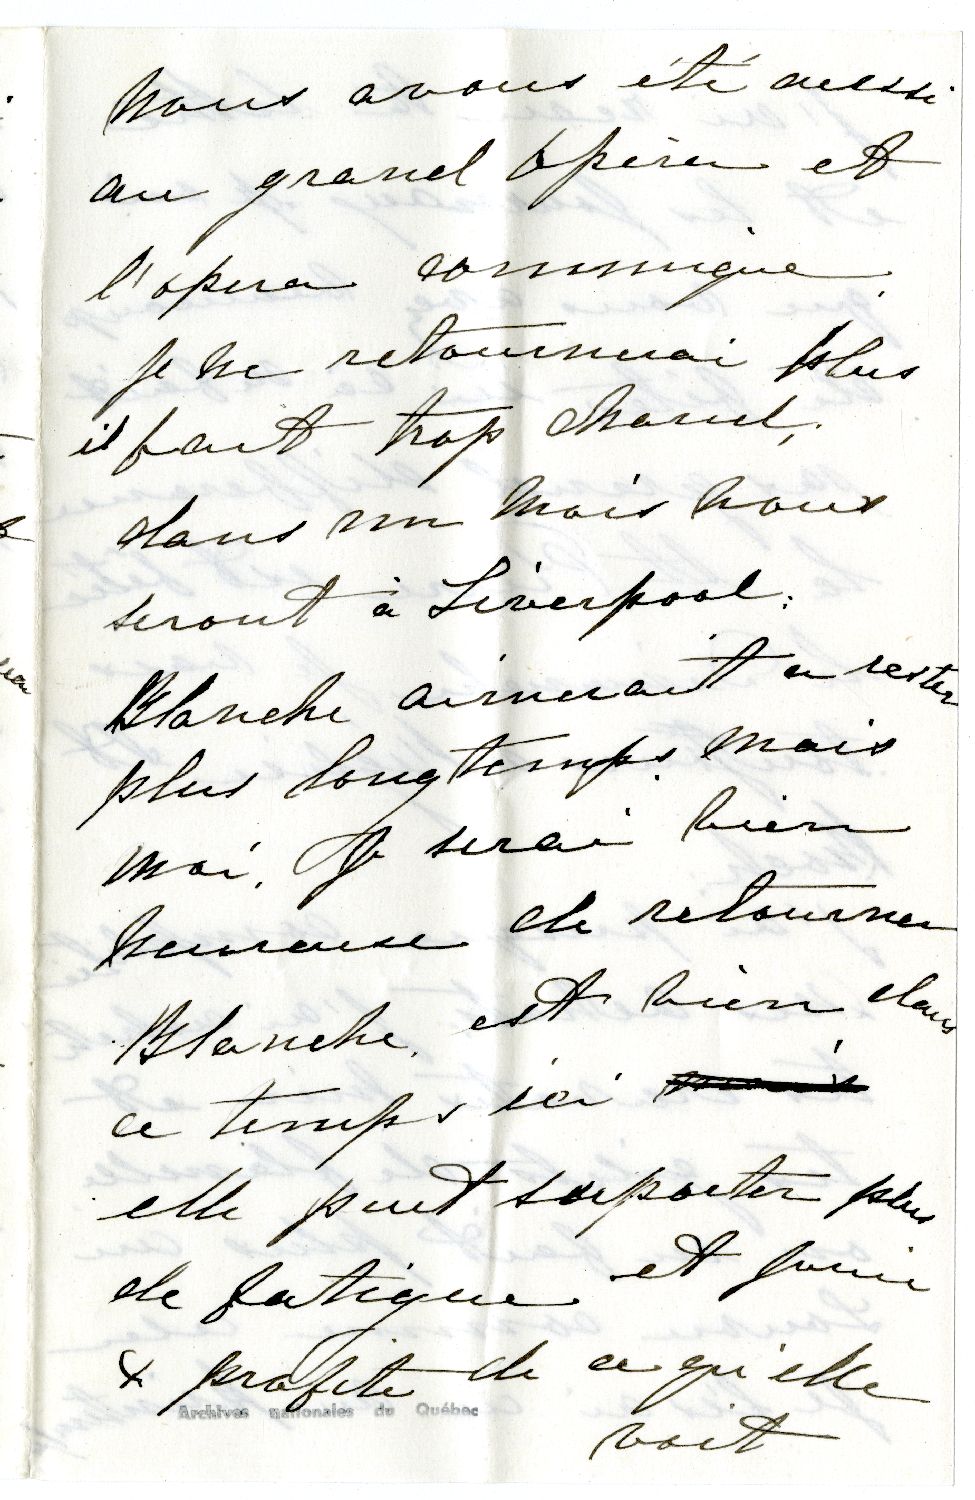 Nous avons été aussi
au grand Opéra et
l'opera commique.
Je ne retournerai plus
il fait trop chaud,
dans un mois nous
seront à Liverpool.
Blanche aimerait a rester
plus longtemps. mais
moi. Je serai bien
heureuse de retourner
Blanche. est bien dans
ce temps ici
elle peut suporter plus
de fatigue et jouir
& profite de ce qu'elle
voit
Archives nationales du Québec